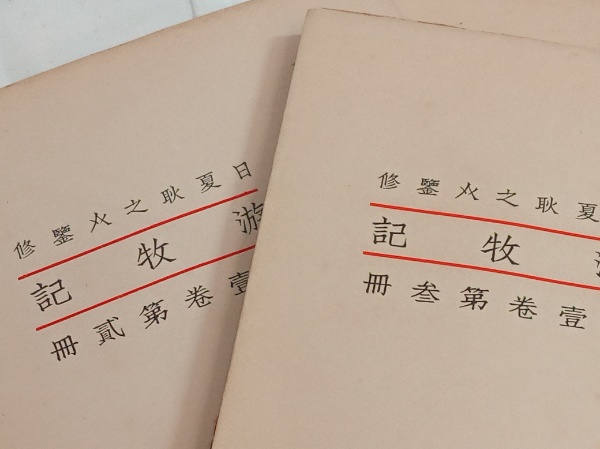 日夏耿之介鑒修
游牧記
壹卷第貳冊
夏耿之介鑒修
游牧記
壹卷第叁冊